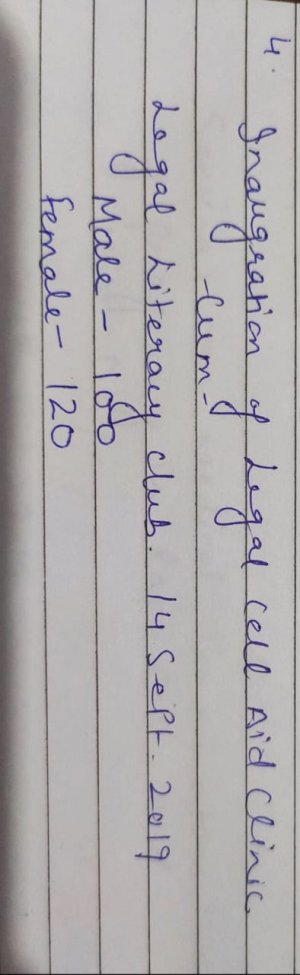 4. Inaugration of Legal Cell Aid Clinic
-Cum-
Legal Literacy Club. 14 Sept. 2019
Male - 100
Female - 120